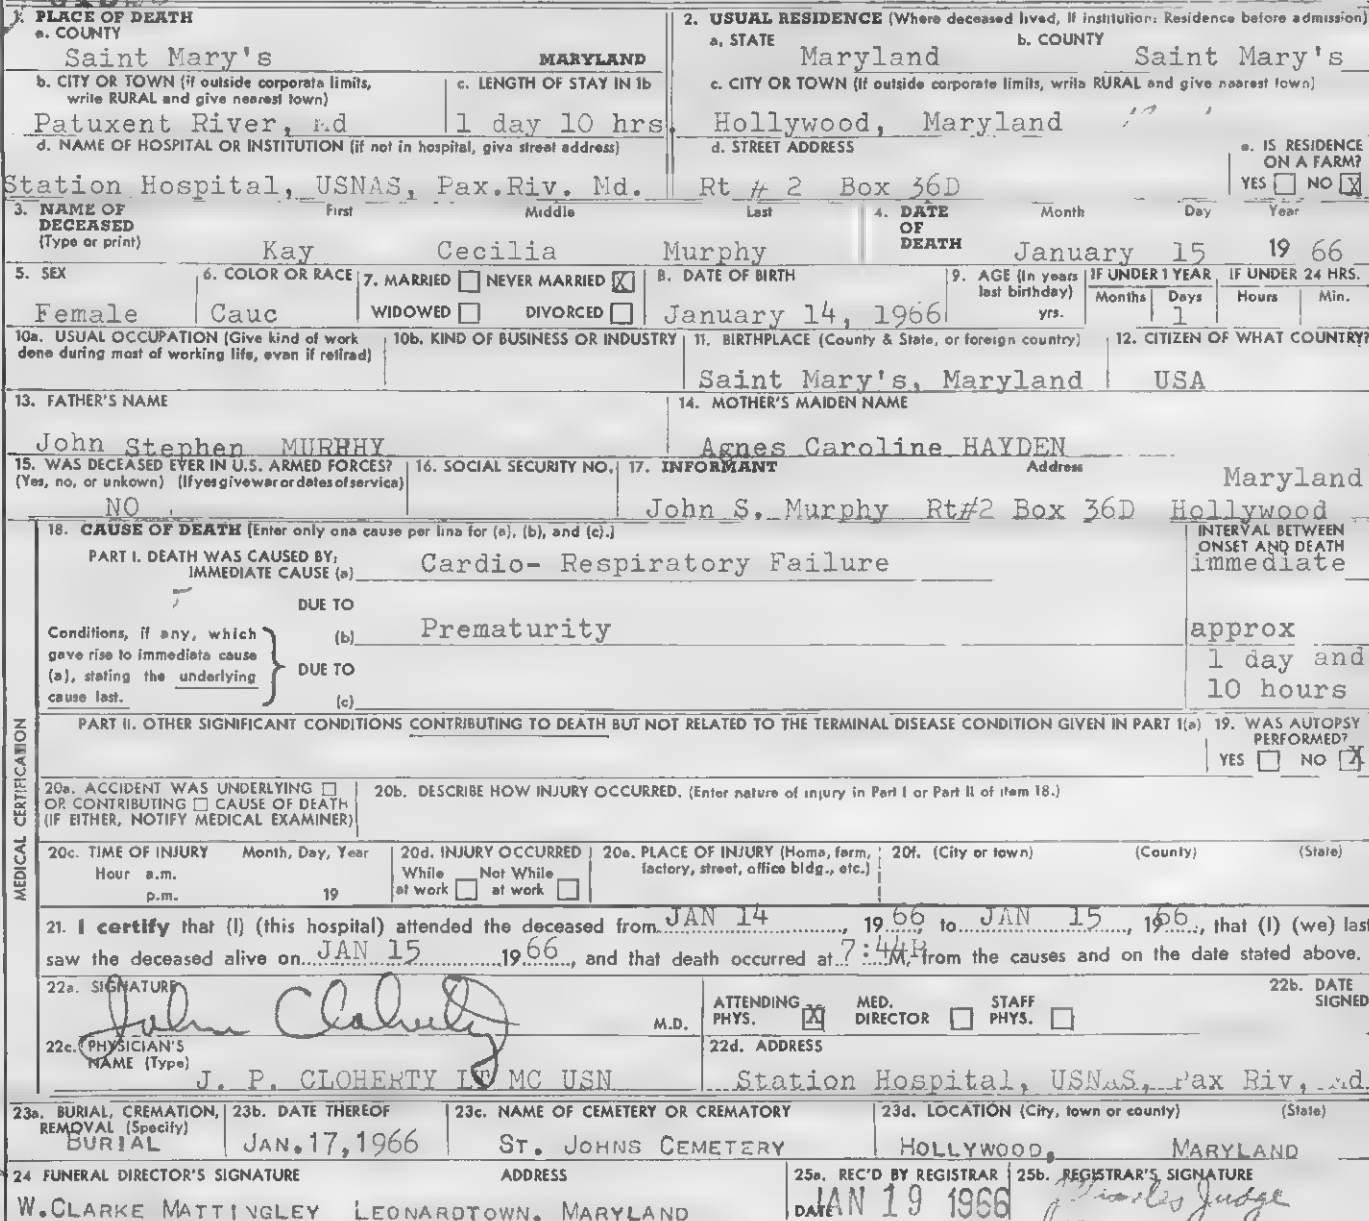 1. PLACE OF DEATH
a. COUNTY
Saint Mary's MARYLAND
2. USUAL RESIDENCE (Where deceased lived, If institution: Residence before admission)
a. STATE b. COUNTY
Maryland Saint Mary's
b. CITY OR TOWN (if outside corporate limits,
write RURAL and give nearest town)
Patuxent River, Md
c. LENGTH OF STAY IN 1b
1 day 10 hrs.
c. CITY OR TOWN (If outside corporate limits, write RURAL and give nearest town)
Hollywood, Maryland
d. NAME OF HOSPITAL OR INSTITUTION (if not in hospital, give street address)
Station Hospital, USNAS, Pax.Riv. Md.
d. STREET ADDRESS
Rt # 2 Box 36D
e. IS RESIDENCE
ON A FARM?
YES NO X
3. NAME OF
DECEASED
(Type or print)
First Middle Last
Kay Cecilia Murphy
4. DATE
OF
DEATH
Month Day Year
January 15 19 66
5. SEX
Female
6. COLOR OR RACE
Cauc
7. MARRIED NEVER MARRIED X
WIDOWED DIVORCED
8. DATE OF BIRTH
January 14, 1966
9. AGE (In years
last birthday)
yrs.
IF UNDER 1 YEAR IF UNDER 24 HRS.
Months Days Hours Min.
1
10a. USUAL OCCUPATION (Give kind of work
done during most of working life, even if retired)
10b. KIND OF BUSINESS OR INDUSTRY
11. BIRTHPLACE (County & State, or foreign country)
Saint Mary's, Maryland
12. CITIZEN OF WHAT COUNTRY?
USA
13. FATHER'S NAME
John Stephen MURPHY
14. MOTHER'S MAIDEN NAME
Agnes Caroline HAYDEN
15. WAS DECEASED EVER IN U.S. ARMED FORCES?
(Yes, no, or unkown) (If yes give war or dates of service)
NO
16. SOCIAL SECURITY NO.
17. INFORMANT Address
Maryland
John S. Murphy Rt#2 Box 36D Hollywood
18. CAUSE OF DEATH [Enter only one cause per line for (a), (b), and (c).]
INTERVAL BETWEEN
ONSET AND DEATH
PART I. DEATH WAS CAUSED BY:
IMMEDIATE CAUSE (a) Cardio- Respiratory Failure immediate
DUE TO
Conditions, if any, which
gave rise to immediate cause
(a), stating the underlying
cause last.
(b) Prematurity approx
1 day and
10 hours
DUE TO
(c)
MEDICAL CERTIFICATION
PART II. OTHER SIGNIFICANT CONDITIONS CONTRIBUTING TO DEATH BUT NOT RELATED TO THE TERMINAL DISEASE CONDITION GIVEN IN PART 1(a)
19. WAS AUTOPSY
PERFORMED?
YES NO X
20a. ACCIDENT WAS UNDERLYING
OR CONTRIBUTING CAUSE OF DEATH
(IF EITHER, NOTIFY MEDICAL EXAMINER)
20b. DESCRIBE HOW INJURY OCCURRED. (Enter nature of injury in Part I or Part II of item 18.)
20c. TIME OF INJURY Month, Day, Year
Hour a.m.
p.m. 19
20d. INJURY OCCURRED
While Not While
at work at work
20e. PLACE OF INJURY (Home, farm,
factory, street, office bldg., etc.)
20f. (City or town) (County) (State)
21. I certify that (I) (this hospital) attended the deceased from JAN 14, 19 66, to JAN 15, 1966, that (I) (we) last
saw the deceased alive on JAN 15 19 66, and that death occurred at 7:44P M, from the causes and on the date stated above.
22a. SIGNATURE
John Cloherty M.D.
ATTENDING
PHYS. X
MED.
DIRECTOR
STAFF
PHYS.
22b. DATE
SIGNED
22c. PHYSICIAN'S
NAME (Type)
J. P. CLOHERTY LT MC USN
22d. ADDRESS
Station Hospital, USNAS, Pax Riv, Md
23a. BURIAL, CREMATION,
REMOVAL (Specify)
BURIAL
23b. DATE THEREOF
JAN.17,1966
23c. NAME OF CEMETERY OR CREMATORY
ST. JOHNS CEMETERY
23d. LOCATION (City, town or county) (State)
HOLLYWOOD, MARYLAND
24 FUNERAL DIRECTOR'S SIGNATURE ADDRESS
W.CLARKE MATTINGLEY LEONARDTOWN, MARYLAND
25a. REC'D BY REGISTRAR
DATE JAN 19 1966
25b. REGISTRAR'S SIGNATURE
Charles Judge